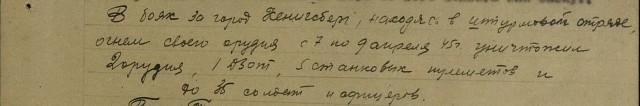 В боях за город Кенигсберг, находясь в штурмовой отряде,
огнем своего орудия с 7 по 9 апреля 45г. уничтожил
2 орудия, 1 ДЗОТ, 5 станковых пулеметов и
до 35 солдат и офицеров.